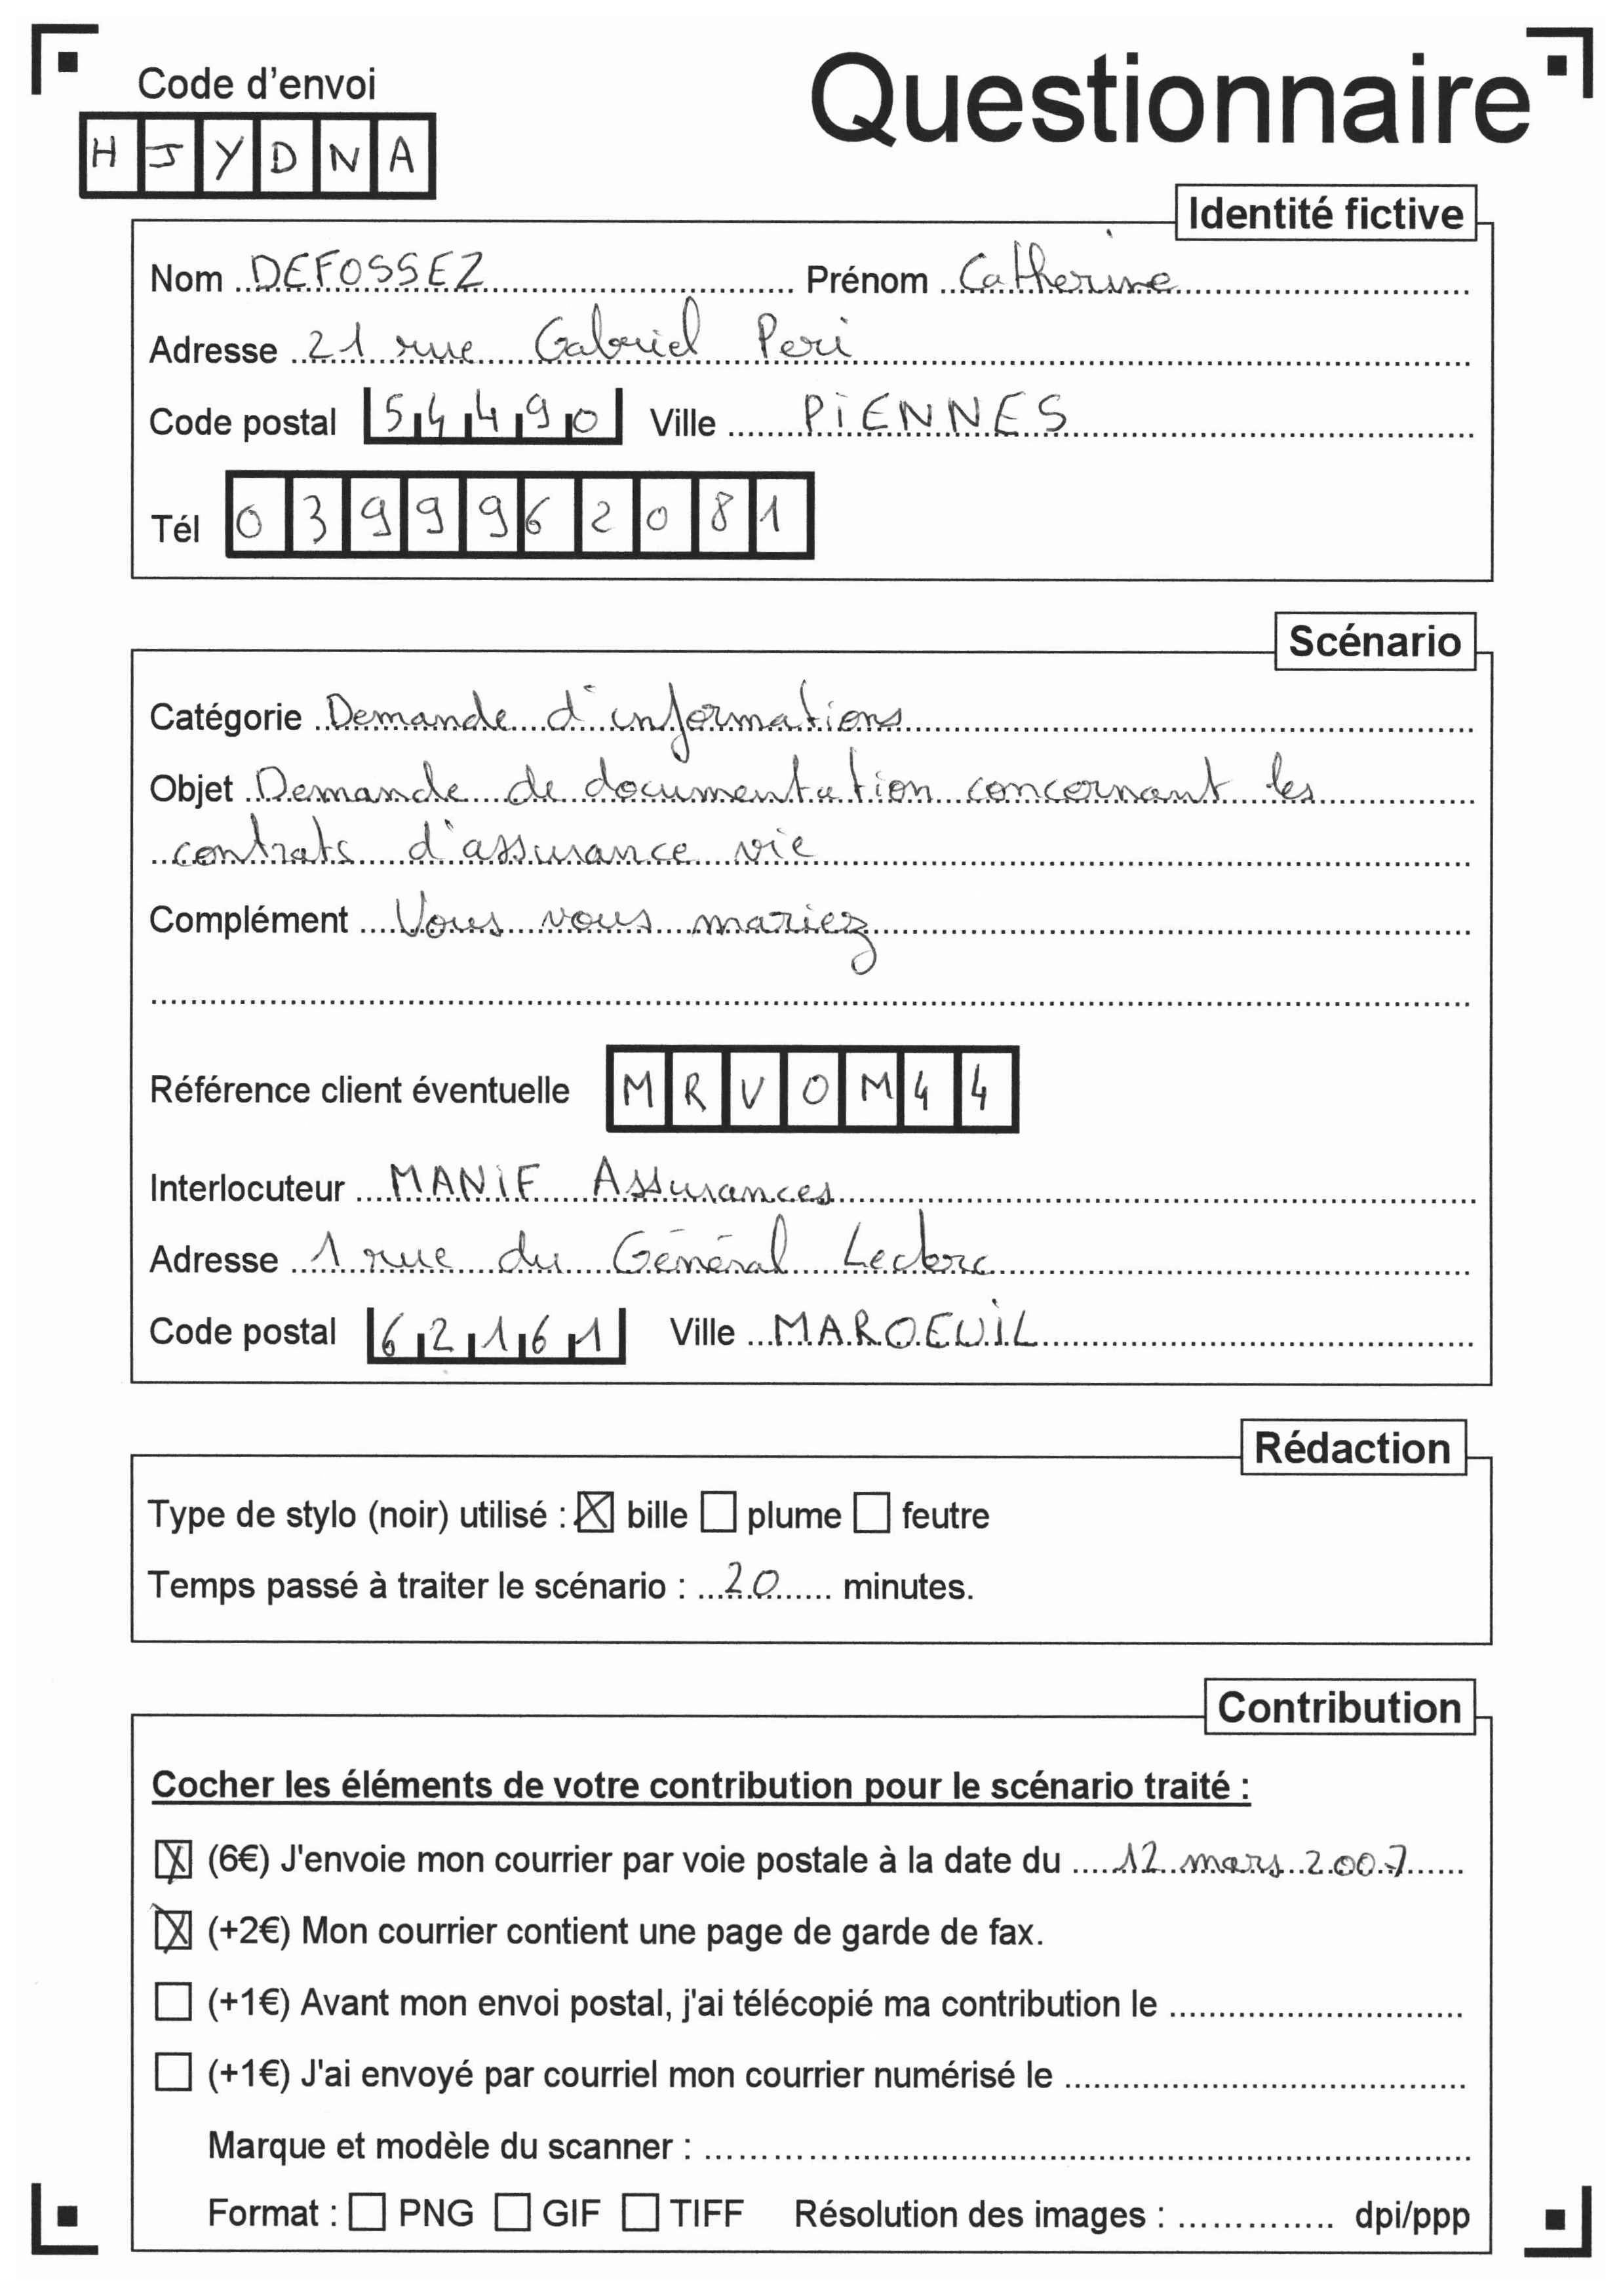 Code d'envoi
Questionnaire
H J Y D N A
Identité fictive
Nom DEFOSSEZ Prénom Catherine
Adresse 21 rue Gabriel Peri
Code postal 54490 Ville PIENNES
Tél 0399962081
Scénario
Catégorie Demande d'informations
Objet Demande de documentation concernant les
contrats d'assurance vie
Complément Vous vous mariez
Référence client éventuelle M R V O M 4 4
Interlocuteur MANIF Assurances
Adresse 1 rue du Général Leclerc
Code postal 62161 Ville MAROEUIL
Rédaction
Type de stylo (noir) utilisé : ☒ bille ☐ plume ☐ feutre
Temps passé à traiter le scénario : 20 minutes.
Contribution
Cocher les éléments de votre contribution pour le scénario traité :
☒ (6€) J'envoie mon courrier par voie postale à la date du 12 mars 2007
☒ (+2€) Mon courrier contient une page de garde de fax.
☐ (+1€) Avant mon envoi postal, j'ai télécopié ma contribution le
☐ (+1€) J'ai envoyé par courriel mon courrier numérisé le
Marque et modèle du scanner :
Format : ☐ PNG ☐ GIF ☐ TIFF Résolution des images : dpi/ppp